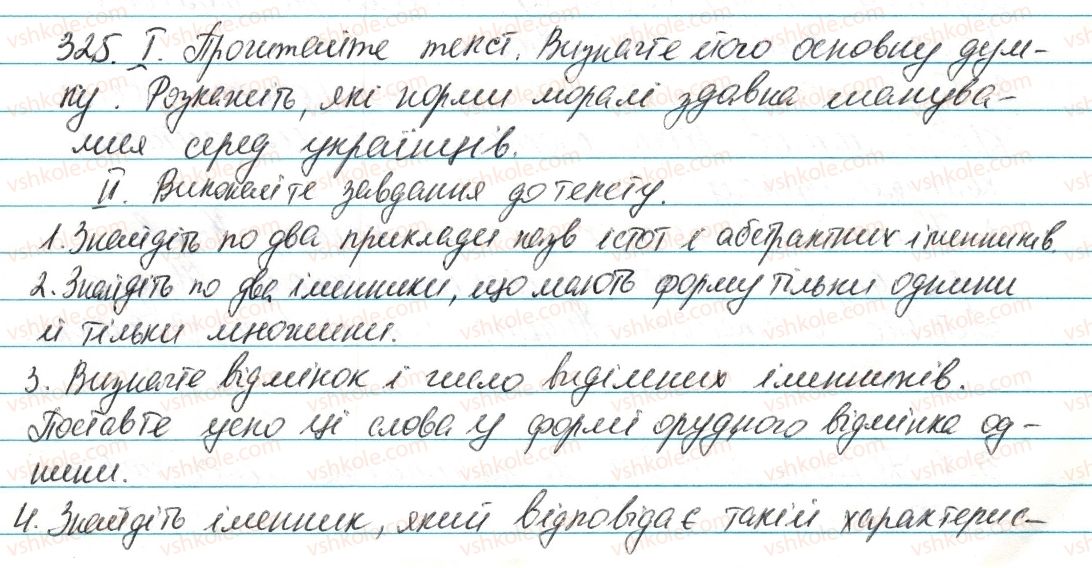 325. І. Прочитайте текст. Визначте його основну дум-
ку. Розкажіть, які норми моралі здавна шанува-
лися серед українців.
ІІ. Виконайте завдання до тексту.
1. Знайдіть по два приклади назв істот і абстрактних іменників.
2. Знайдіть по два іменники, що мають форму тільки однини
й тільки множини.
3. Визначте відмінок і число виділених іменників.
Поставте усно ці слова у формі орудного відмінка од-
нини.
4. Знайдіть іменник, який відповідає такій характерис-